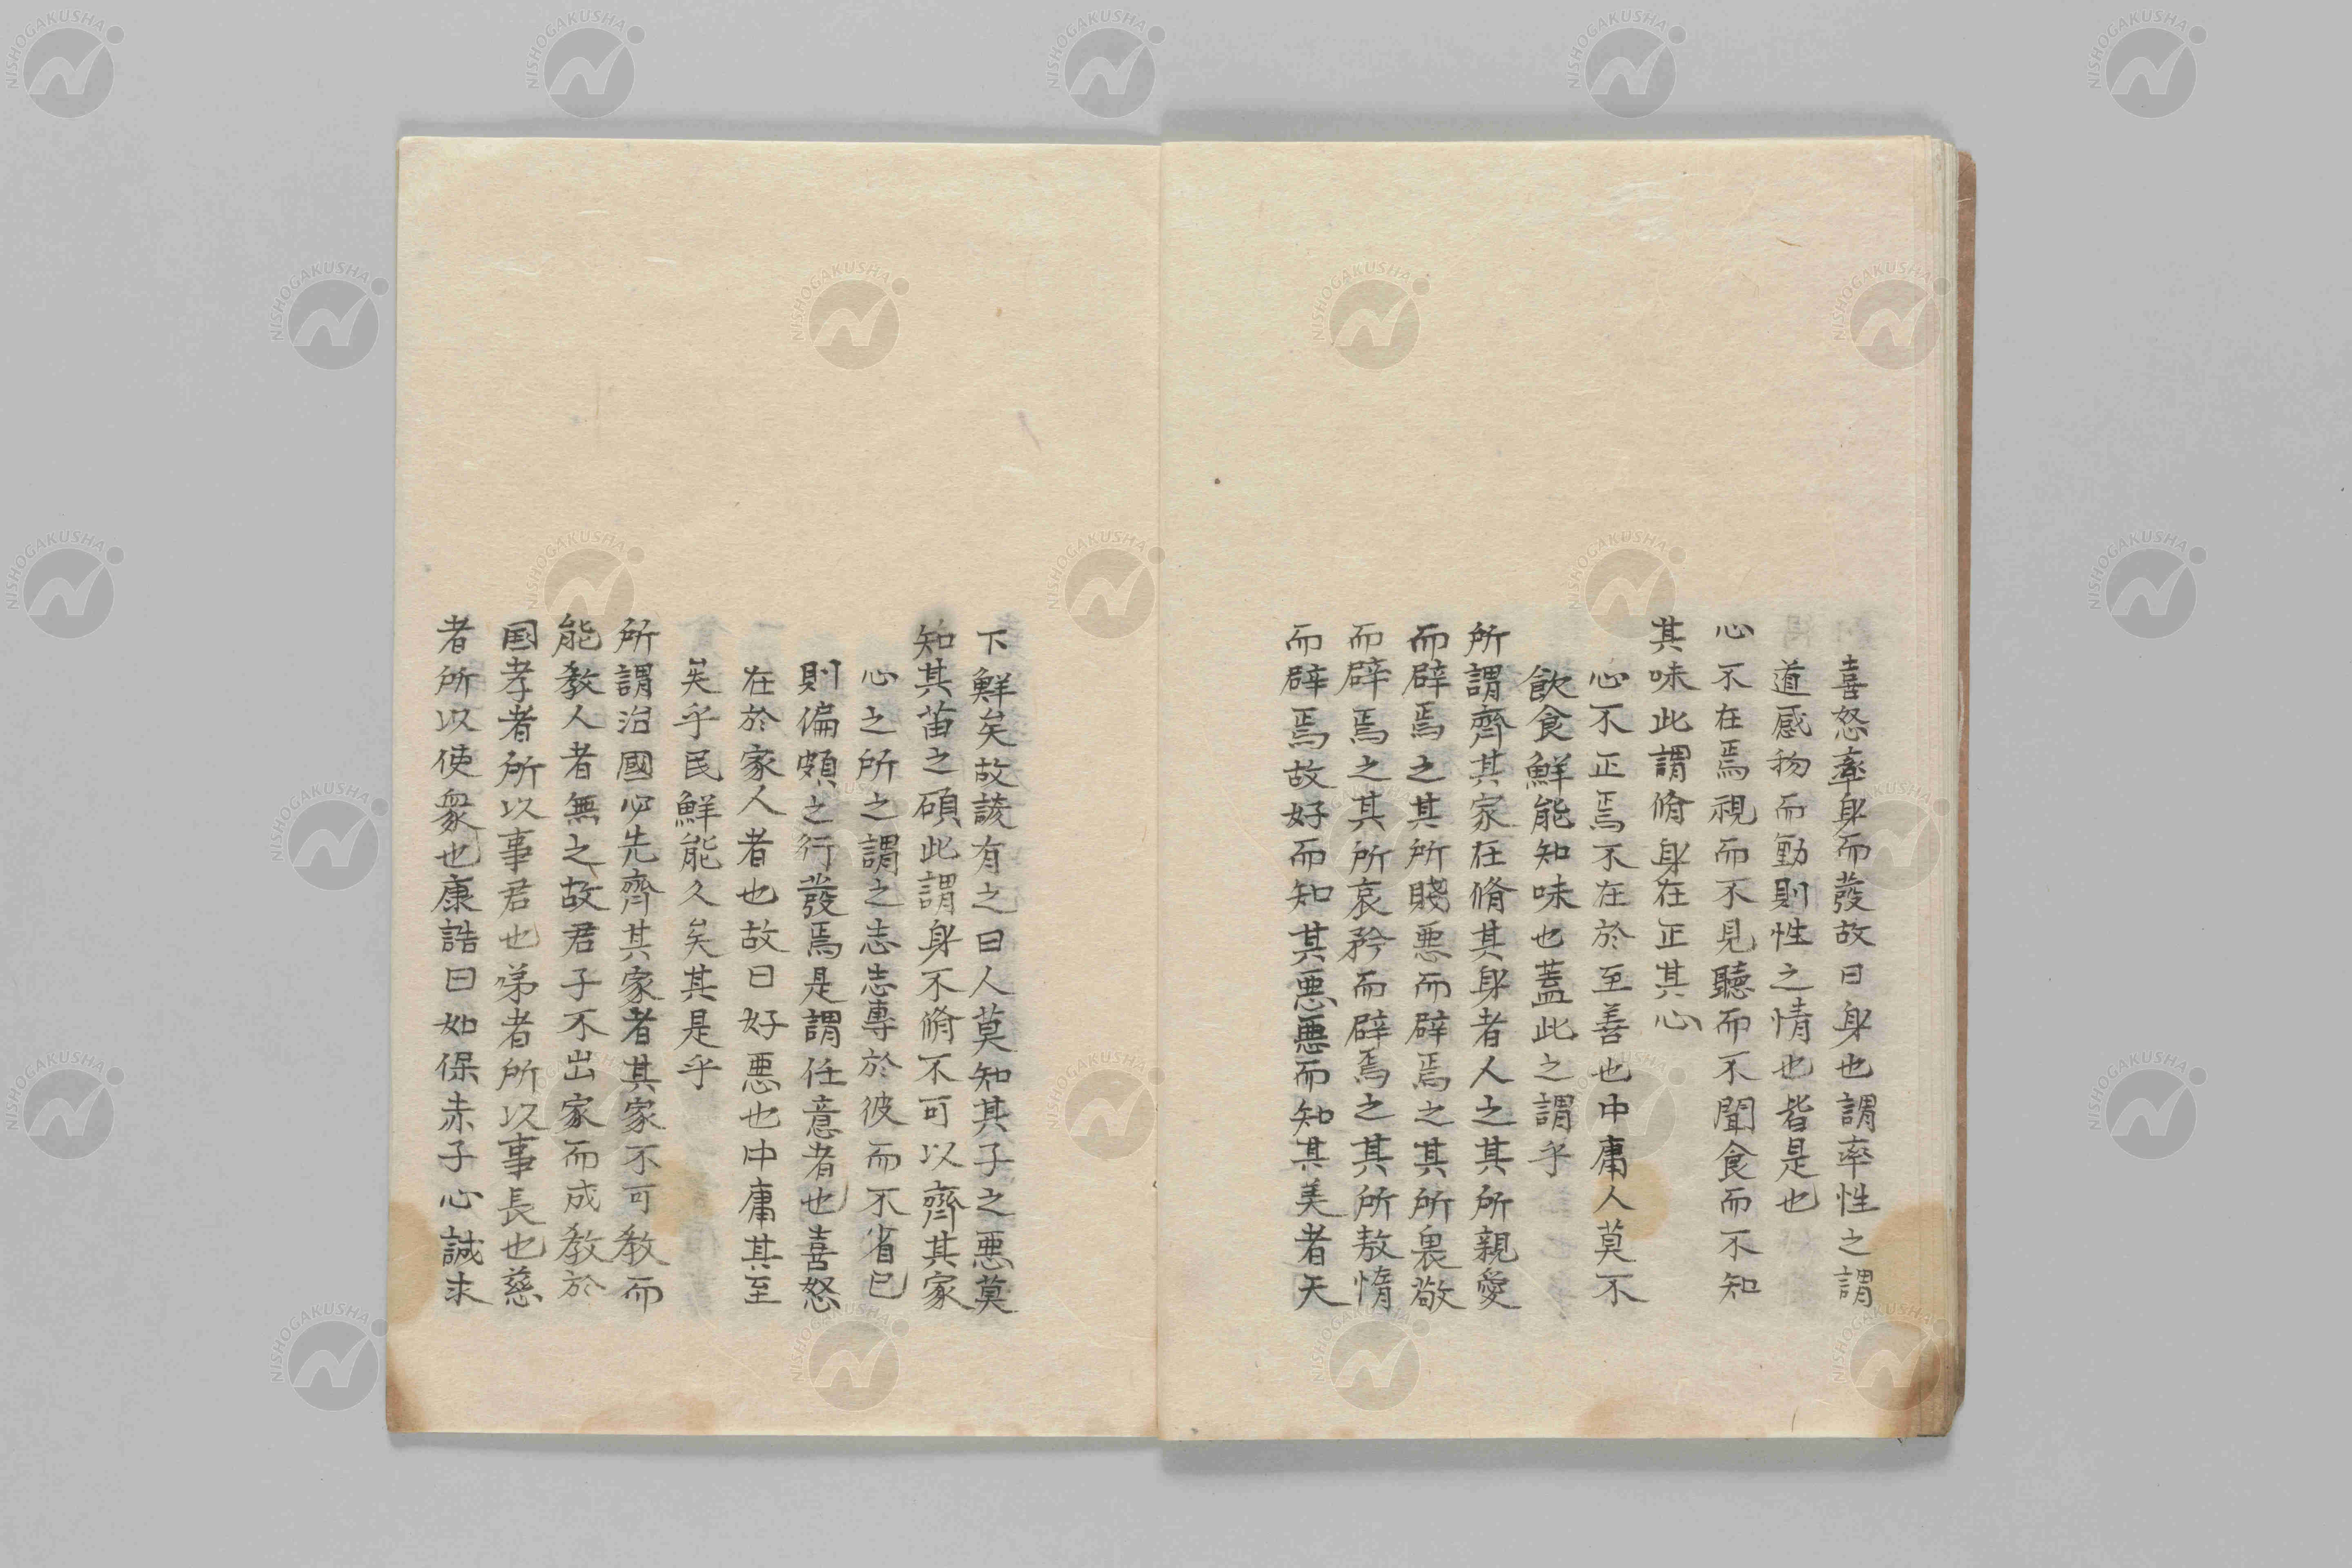 喜怒牽身而發故曰身也謂率性之謂
道感物而動則性之情也皆是也
心不在焉視而不見聽而不聞食而不知
其味此謂脩身在正其心
心不正焉不在於至善也中庸人莫不
飲食鮮能知味也蓋此之謂乎
所謂齊其家在脩其身者人之其所親愛
而辟焉之其所賤悪而辟焉之其所畏敬
而辟焉之其所哀矜而辟焉之其所敖惰
而辟焉故好而知其悪悪而知其美者天
下鮮矣故諺有之曰人莫知其子之悪莫
知其苗之碩此謂身不脩不可以齊其家
心之所之謂之志志專於彼而不省已
則偏頗之行發焉是謂任意者也喜怒
在於家人者也故曰好悪也中庸其至
矣乎民鮮能久矣其是乎
所謂治國必先齊其家者其家不可教而
能教人者無之故君子不出家而成教於
国孝者所以事君也弟者所以事長也慈
者所以使衆也康誥曰如保赤子心誠求
NISHOGAKUSHA